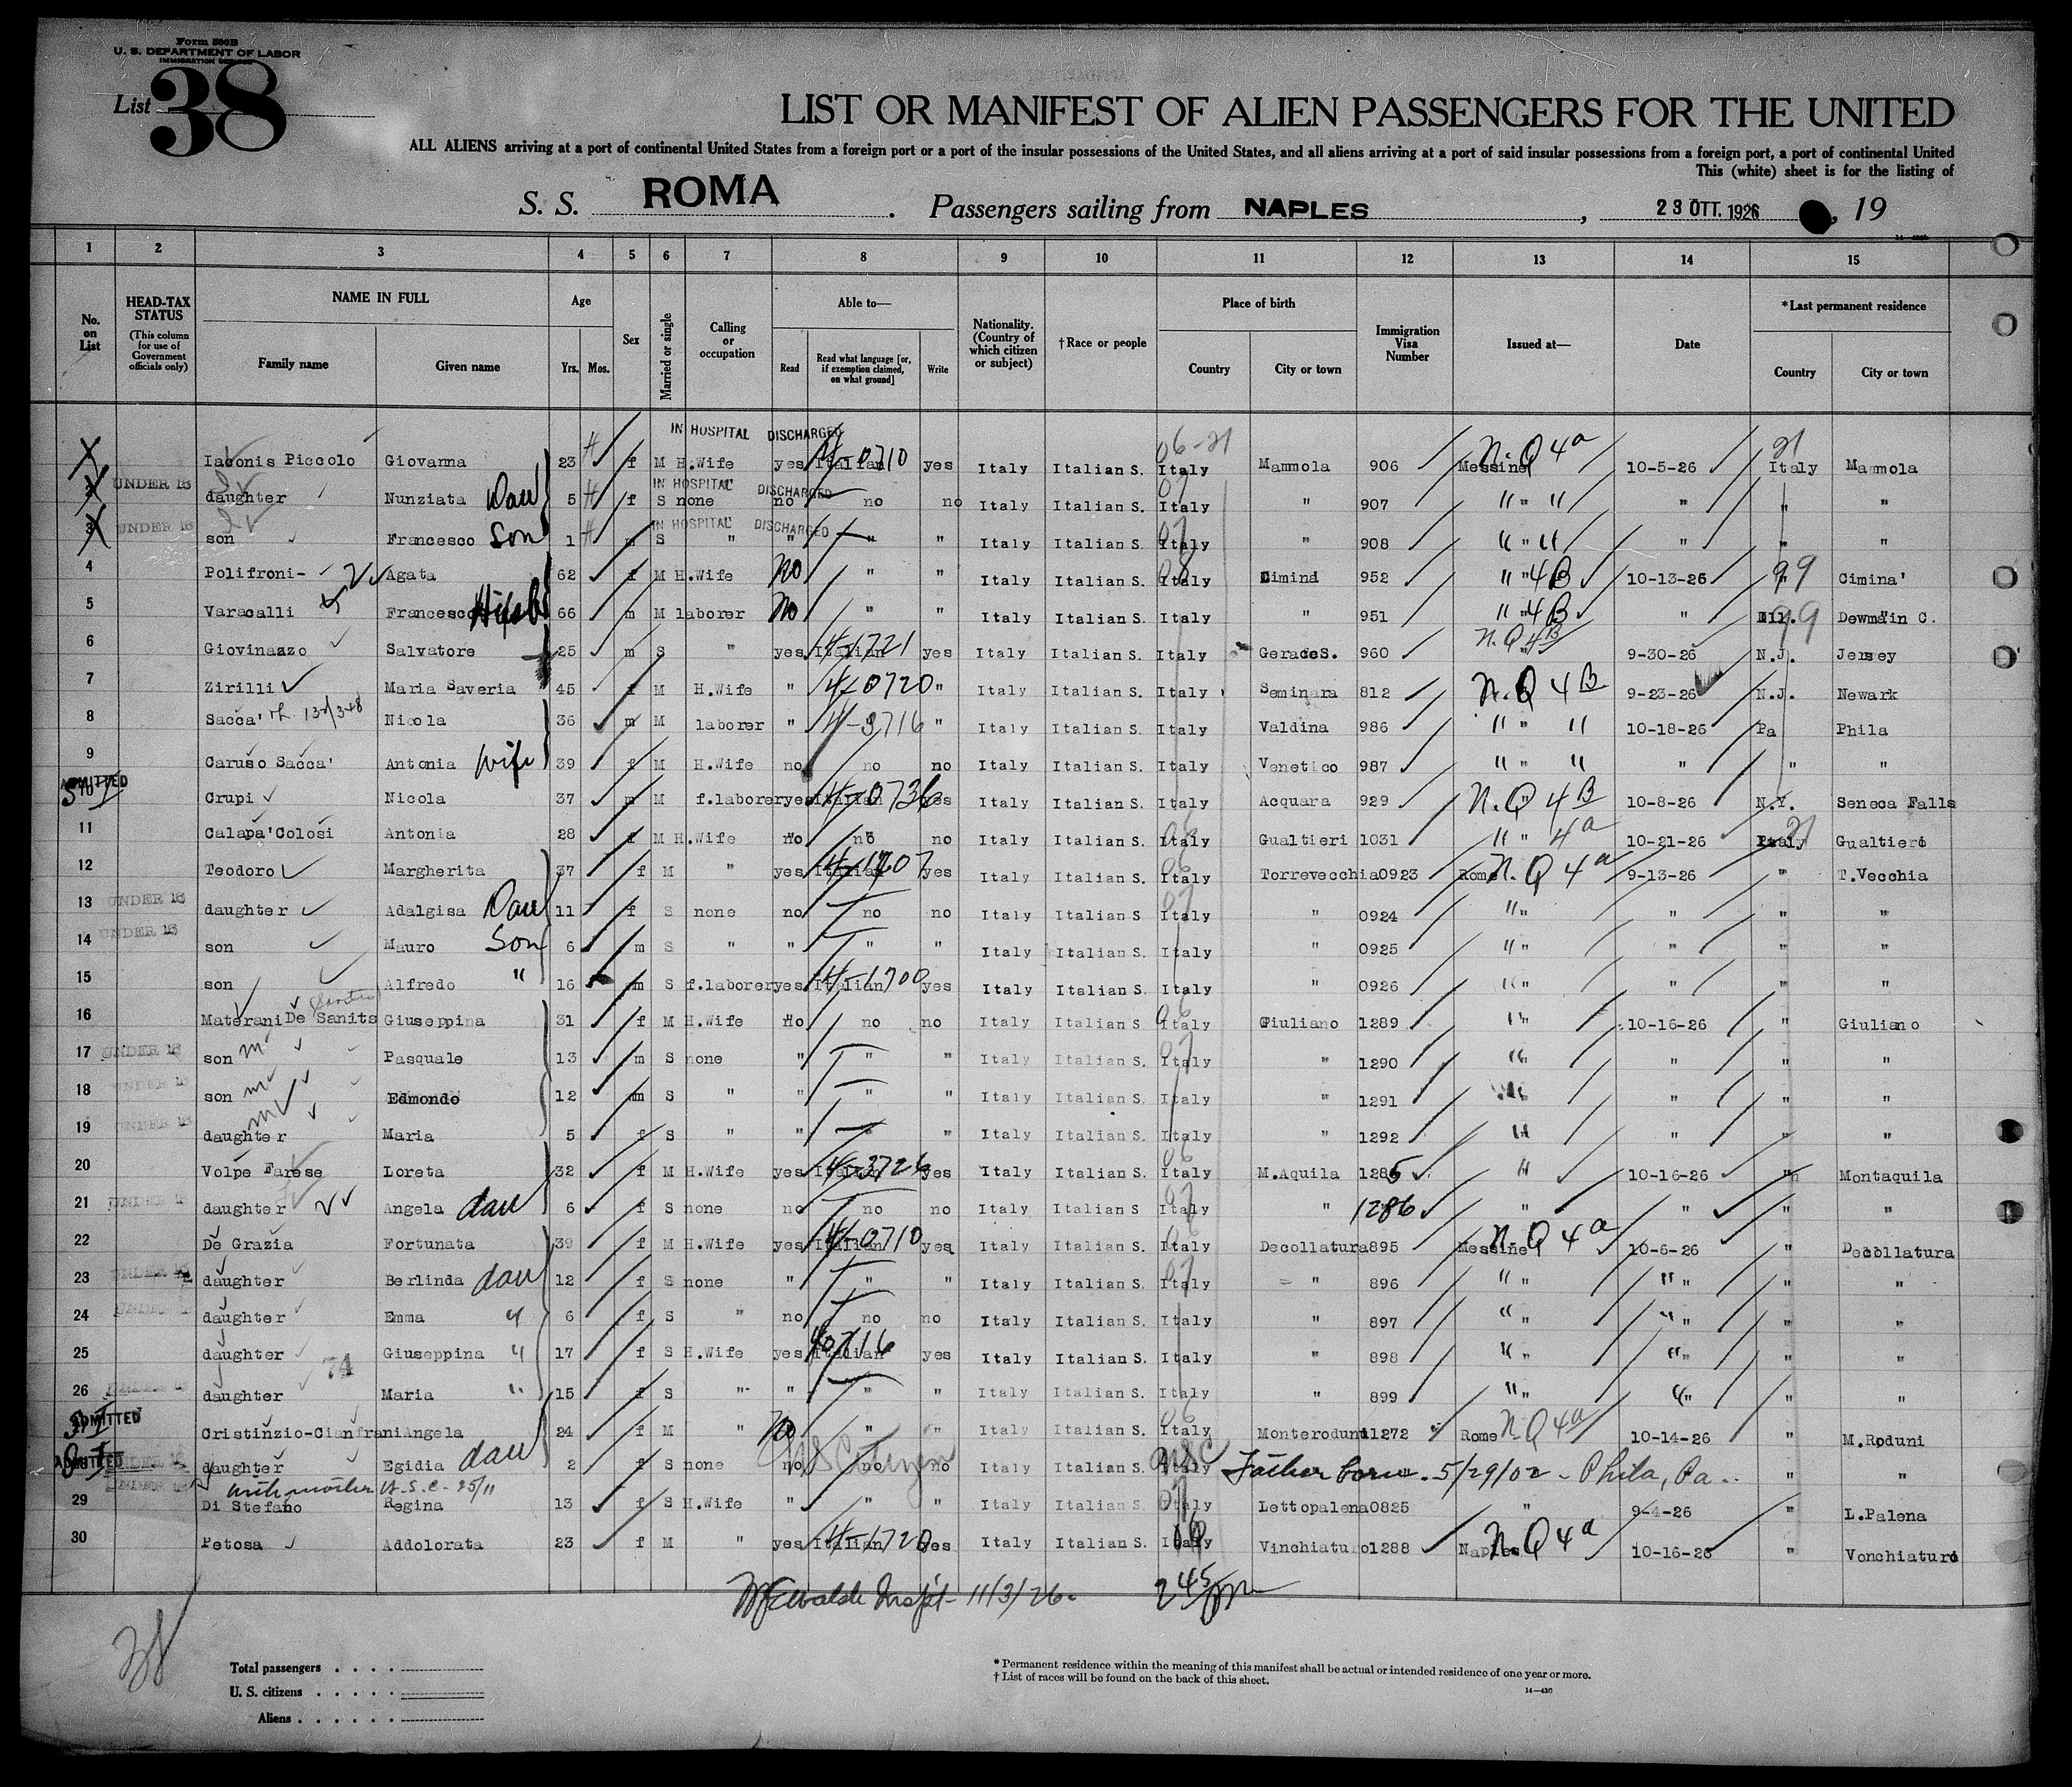 Form 500B
U. S. DEPARTMENT OF LABOR
IMMIGRATION SERVICE
List 38
LIST OR MANIFEST OF ALIEN PASSENGERS FOR THE UNITED
ALL ALIENS arriving at a port of continental United States from a foreign port or a port of the insular possessions of the United States, and all aliens arriving at a port of said insular possessions from a foreign port, a port of continental United
This (white) sheet is for the listing of
S. S. ROMA. Passengers sailing from NAPLES, 23 OTT. 1926, 19
1 2 3 4 5 6 7 8 9 10 11 12 13 14 15
No. on List
HEAD-TAX STATUS (This column for use of Government officials only)
NAME IN FULL Family name Given name
Age Yrs. Mos.
Sex
Married or single
Calling or occupation
Able to— Read Read what language [or, if exemption claimed, on what ground] Write
Nationality. (Country of which citizen or subject)
†Race or people
Place of birth Country City or town
Immigration Visa Number
Issued at—
Date
*Last permanent residence Country City or town
IN HOSPITAL DISCHARGED 06-21
Iaconis Piccolo Giovanna 23 f M H.Wife yes Italian yes Italy Italian S. Italy Mammola 906 Messine N.Q 4a 10-5-26 Italy Mammola
UNDER 16 IN HOSPITAL DISCHARGED
2 daughter Nunziata Dau 5 f S none no no no Italy Italian S. Italy " 907 " " " " " "
UNDER 16 IN HOSPITAL DISCHARGED
3 son Francesco Son 1 m S " " " " Italy Italian S. Italy " 908 " " " " " "
4 Polifroni- Agata 62 f M H.Wife No " " Italy Italian S. Italy Cimina 952 " " 4B 10-13-26 " Cimina'
5 Varacalli Francesco Husb 66 m M laborer No " " Italy Italian S. Italy " 951 " " 4B " Dewmain C.
6 Giovinazzo Salvatore 25 m S " yes Italian 4-1721 yes Italy Italian S. Italy GeraceS. 960 N.Q 4B 9-30-26 N.J. Jersey
7 Zirilli Maria Saveria 45 f M H.Wife " 4-0720 " Italy Italian S. Italy Seminara 812 N.Q 4B 9-23-26 N.J. Newark
8 Sacca' 132/348 Nicola 36 m M laborer " 4-3716 " Italy Italian S. Italy Valdina 986 " " " 10-18-26 Pa Phila
9 Caruso Sacca' Antonia wife 39 f M H.Wife no no no Italy Italian S. Italy Venetico 987 " " " " " "
ADMITTED
10 Crupi Nicola 37 m M f.laborer yes Italian 4-0736 yes Italy Italian S. Italy Acquara 929 N.Q 4B 10-8-26 N.Y. Seneca Falls
11 Calapa'Colosi Antonia 28 f M H.Wife no no no Italy Italian S. Italy Gualtieri 1031 " " 4a 10-21-26 Italy Gualtieri
12 Teodoro Margherita 37 f M " yes Italian yes Italy Italian S. Italy Torrevecchia 0923 Rome N.Q 4a 9-13-26 " T.Vecchia
13 UNDER 16 daughter Adalgisa Dau 11 f S none no no no Italy Italian S. Italy " 0924 " " " " "
14 UNDER 16 son Mauro Son 6 m S " " " " Italy Italian S. Italy " 0925 " " " " "
15 son Alfredo " 16 m S f.laborer yes Italian 4-1700 yes Italy Italian S. Italy " 0926 " " " " "
16 Materani De Sanits Giuseppina 31 f M H.Wife no no no Italy Italian S. Italy Giuliano 1289 " " 10-16-26 " Giuliano
17 UNDER 16 son Pasquale 13 m S none " " " Italy Italian S. Italy " 1290 " " " "
18 UNDER 16 son Edmondo 12 m S " " " " Italy Italian S. Italy " 1291 " " " "
19 UNDER 16 daughter Maria 5 f S " " " " Italy Italian S. Italy " 1292 " " " "
20 Volpe Farese Loreta 32 f M H.Wife yes Italian 4-3726 yes Italy Italian S. Italy M.Aquila 1285 " 10-16-26 " Montaquila
21 UNDER 16 daughter Angela dau 6 f S none no no no Italy Italian S. Italy " 1286 " " " "
22 De Grazia Fortunata 39 f M H.Wife yes Italian 4-0710 yes Italy Italian S. Italy Decollatura 895 Messine N.Q 4a 10-6-26 " Decollatura
23 UNDER 16 daughter Berlinda dau 12 f S none " " " Italy Italian S. Italy " 896 " " " " " "
24 UNDER 16 daughter Emma " 6 f S " no no no Italy Italian S. Italy " 897 " " " " " "
25 daughter 74 Giuseppina " 17 f S H.Wife yes Italian yes Italy Italian S. Italy " 898 " " " " " "
26 UNDER 16 daughter Maria " 15 f S " " " " Italy Italian S. Italy " 899 " " " " " "
ADMITTED
Cristinzio-Cianfrani Angela 24 f M " No " " Italy Italian S. Italy Monteroduni 1272 Rome N.Q 4a 10-14-26 " M.Roduni
ADMITTED UNDER 16
daughter Egidia dau 2 f S none no no no US Citizen Italy Italian S. Italy USC Father born 5/29/02 - Phila, Pa. " "
UNDER 16 with mother
29 Di Stefano Regina 13 f S H.Wife " " " Italy Italian S. Italy Lettopalena 0825 " 9-4-26 " L.Palena
30 Petosa Addolorata 23 f M " yes Italian 4-1720 yes Italy Italian S. Italy Vinchiaturo 1288 Naples N.Q 4a 10-16-26 " Vonchiaturo
Inspt- 11/3/26. 2 45 pm
38
Total passengers
U. S. citizens
Aliens
* Permanent residence within the meaning of this manifest shall be actual or intended residence of one year or more.
† List of races will be found on the back of this sheet.
14—430